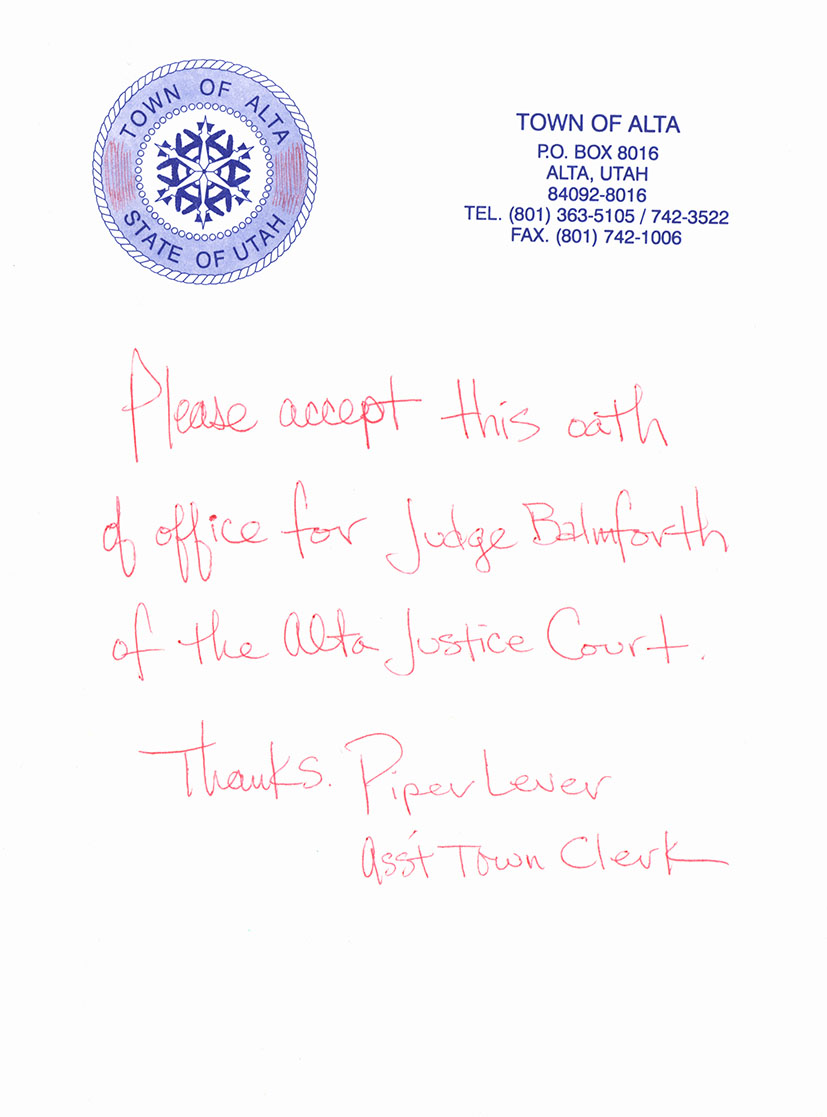 TOWN OF ALTA
STATE OF UTAH
TOWN OF ALTA
P.O. BOX 8016
ALTA, UTAH
84092-8016
TEL. (801) 363-5105 / 742-3522
FAX. (801) 742-1006
Please accept this oath
of office for Judge Balmforth
of the Alta Justice Court.
Thanks. Piper Lever
Ass't Town Clerk